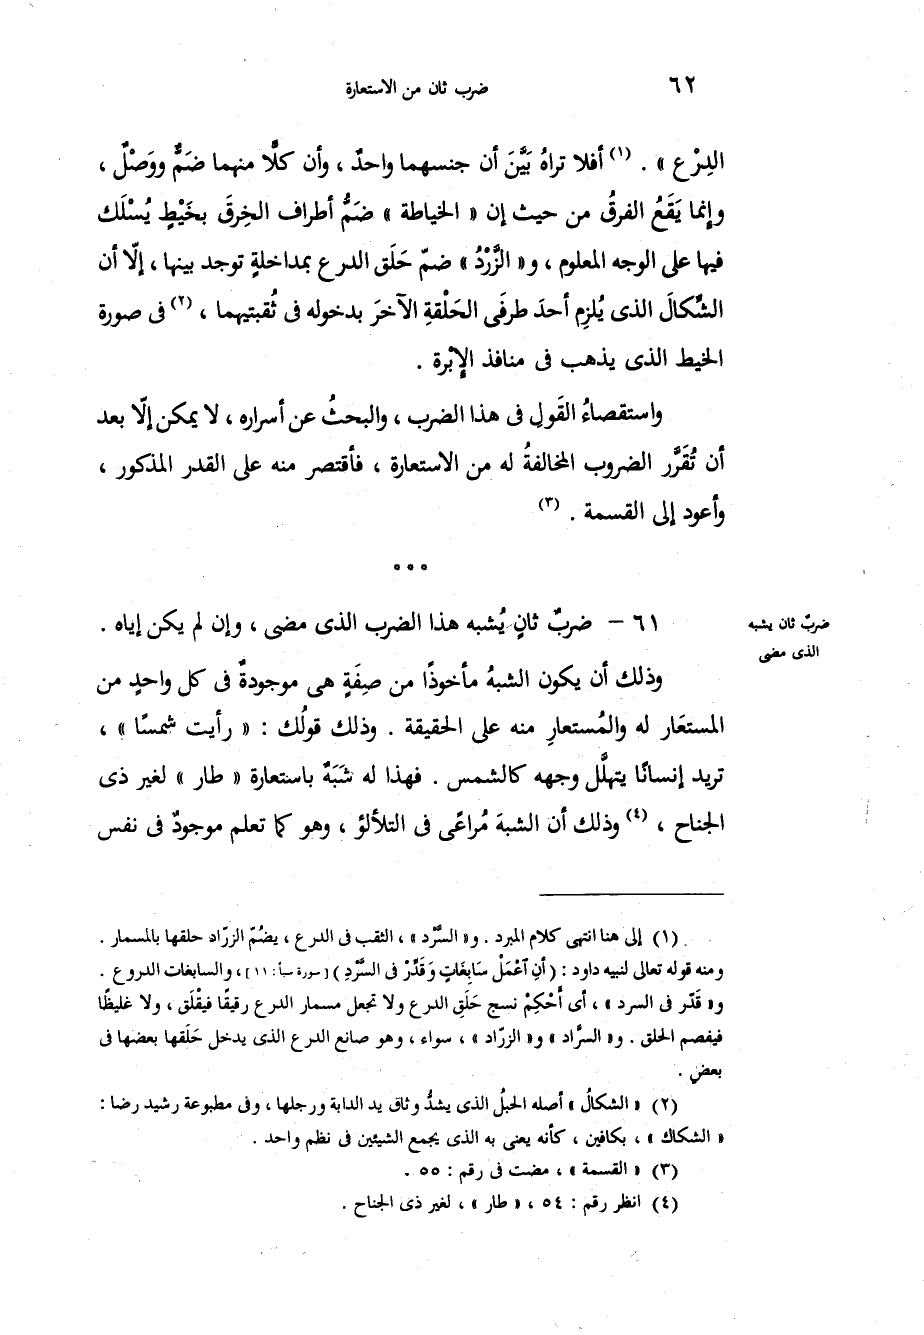 ٦٢
ضرب ثان من الاستعارة
الدِرْع » . (١) أفلا تراهُ بَيَّنَ أن جنسهما واحدٌ ، وأن كلًّا منهما ضَمٌّ ووَصْلٌ ،
وإنما يَقَعُ الفرقُ من حيث إن « الخياطة » ضَمُّ أطراف الخِرقَ بخَيْطٍ يُسْلَك
فيها على الوجه المعلوم ، و« الزَّرْدُ » ضمّ حَلَق الدرع بمداخلةٍ توجد بينها ، إلّا أن
الشِّكالَ الذى يُلزِم أحدَ طرفَى الحَلْقةِ الآخرَ بدخوله فى ثُقبتيهما ، (٢) فى صورة
الخيط الذى يذهب فى منافذ الإبْرة .
واستقصاءُ القَولِ فى هذا الضرب ، والبحثُ عن أسراره ، لا يمكن إلّا بعد
أن تُقَرَّر الضروب المخالفةُ له من الاستعارة ، فأقتصر منه على القدر المذكور ،
وأعود إلى القسمة . (٣)
٦١ – ضربٌ ثانٍ يُشبه هذا الضرب الذى مضى ، وإن لم يكن إياه .
ضربٌ ثان يشبه
الذى مضى
وذلك أن يكون الشبهُ مأخوذًا من صِفَةٍ هى موجودةٌ فى كل واحدٍ من
المستعَار له والمُستعارِ منه على الحقيقة . وذلك قولُك : « رأيت شمسًا » ،
تريد إنسانًا يتهلَّل وجهه كالشمس . فهذا له شَبَهٌ باستعارة « طار » لغير ذى
الجناح ، (٤) وذلك أن الشبهَ مُراعًى فى التلألؤ ، وهو كما تعلم موجودٌ فى نفس
(١) إلى هنا انتهى كلام المبرد . و« السَّرْد » ، الثقب فى الدرع ، يضُمّ الزرّاد حلقها بالمسمار .
ومنه قوله تعالى لنبيه داود : ﴿ أَنِ ٱعْمَلْ سَابِغَاتٍ وَقَدِّرْ فى السَّرْدِ ﴾ [ سورة سبأ : ١١ ] ، والسابغات الدروع .
و« قَدّر فى السرد » ، أى أحْكِمْ نسج حَلَقِ الدرع ولا تجعل مسمار الدرع رقيقًا فيقْلَق ، ولا غليظًا
فيفصم الحلق . و« السرَّاد » و« الزرّاد » ، سواء ، وهو صانع الدرع الذى يدخل حَلَقها بعضها فى
بعضٍ .
(٢) « الشكالُ » أصله الحبلُ الذى يشدُّ وثاق يد الدابة ورجلها ، وفى مطبوعة رشيد رضا :
« الشكاك » ، بكافين ، كأنه يعنى به الذى يجمع الشيئين فى نظم واحد .
(٣) « القسمة » ، مضت فى رقم : ٥٥ .
(٤) انظر رقم : ٥٤ ، « طار » ، لغير ذى الجناح .